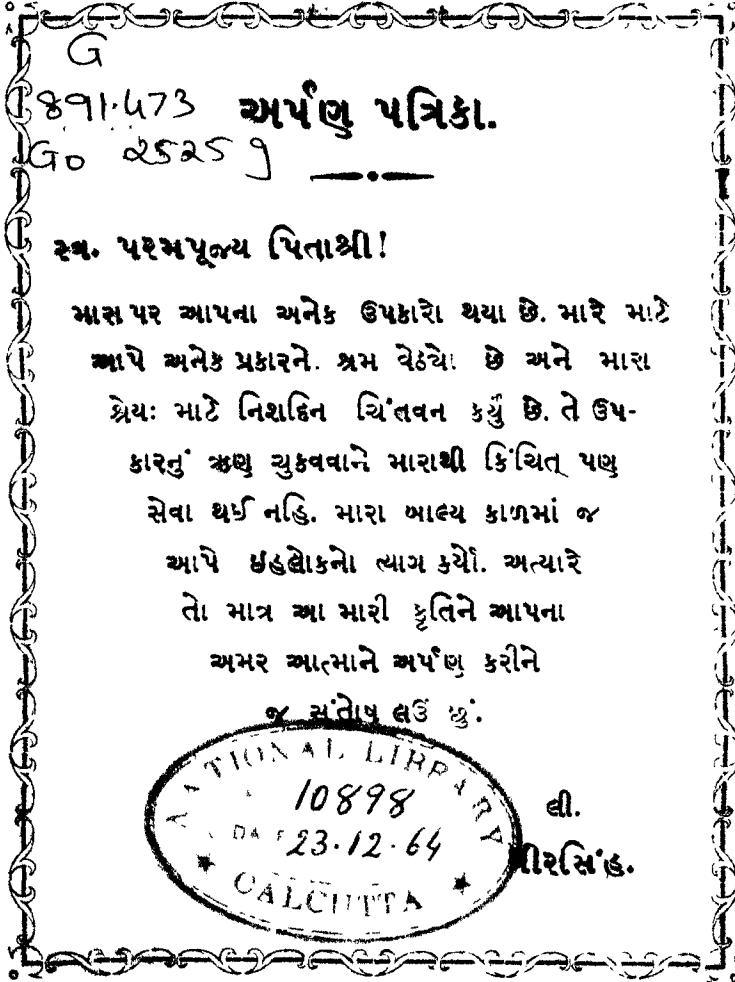 G
891.473
Go 2525 g
અર્પણ પત્રિકા.
સ્વ. પરમપૂજ્ય પિતાશ્રી!
મારા પર આપના અનેક ઉપકારો થયા છે. મારે માટે
આપે અનેક પ્રકારનો શ્રમ વેઠ્યો છે અને મારા
શ્રેયઃ માટે નિશદિન ચિંતવન કર્યું છે. તે ઉપ-
કારનું ઋણ ચુકવવાને મારાથી કિંચિત્ પણ
સેવા થઈ નહિ. મારા બાલ્ય કાળમાં જ
આપે ઇહલોકનો ત્યાગ કર્યો. અત્યારે
તો માત્ર આ મારી કૃતિને આપના
અમર આત્માને અર્પણ કરીને
જ સંતોષ લઉં છું.
NATIONAL LIBRARY
10898
DATE 23.12.64
CALCUTTA
લી.